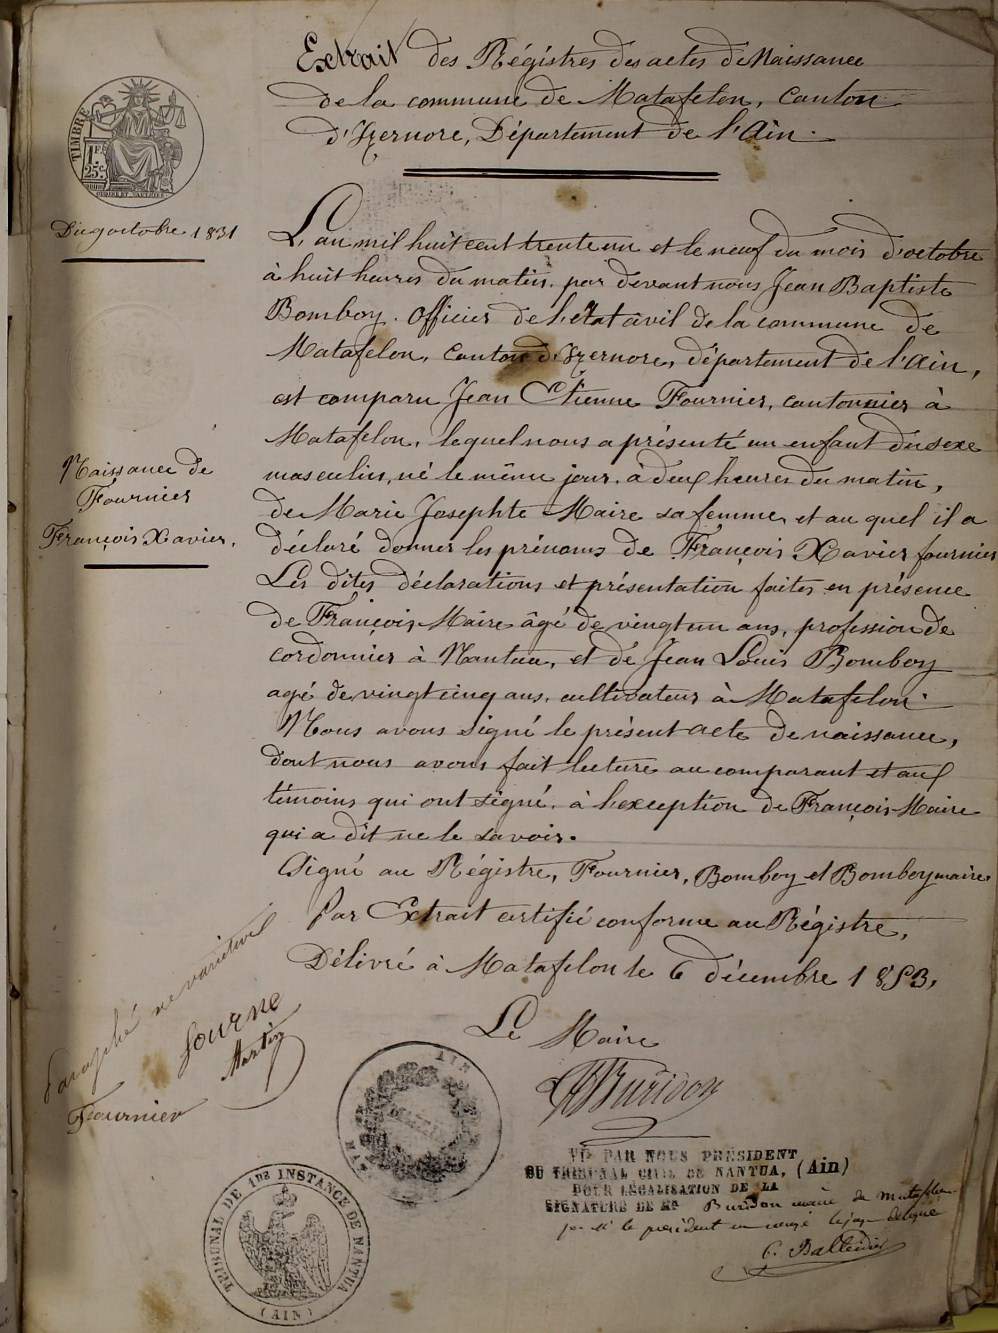 Extrait des Régistres des actes de Naissance
de la commune de Matafelon, Canton
d'Izernore, Département de l'Ain.
TIMBRE
1 F.
25 C.
Du 9 octobre 1831
L'an mil huit cent trente un et le neuf du mois d'octobre
à huit heures du matin. par devant nous Jean Baptiste
Bomboy. Officier de l'etat âvil de la commune de
Matafelon, Canton d'Izernore, département de l'Ain,
est comparu Jean Etienne Fournier, cantonnier à
Matafelon, lequel nous a présenté un enfant du sexe
masculin, né le même jour, à deux heures du matin,
de Marie Josephte Maire sa femme, et au quel il a
déclaré donner les prénoms de François Xavier fournier
Les dites déclarations et présentation faites en présence
de François Maire âgé de vingt un ans, profession de
cordonnier à Nantua, et de Jean Louis Bomboy
agé de vingt cinq ans, cultivateur à Matafelon.
Nous avons signé le présent acte de naissance,
dont nous avons fait lecture au comparant et aux
témoins qui ont signé, à l'exception de François Maire
qui a dit ne le savoir.
Signé au Régistre, Fournier, Bomboy et Bomboy maire.
Par Extrait certifié conforme au Régistre,
Délivré à Matafelon le 6 décembre 1853,
Le Maire
Buridon
Naissance de
Fournier
François Xavier.
Paraphé ne varietur
fourne
Martin
Fournier
AIN
VU PAR NOUS PRÉSIDENT
DU TRIBUNAL CIVIL DE NANTUA, (Ain)
POUR LÉGALISATION DE LA
SIGNATURE DE Mr Buridon maire de matafelon
par Mr le président en congé le juge délégué
TRIBUNAL DE 1re INSTANCE DE NANTUA
(AIN)